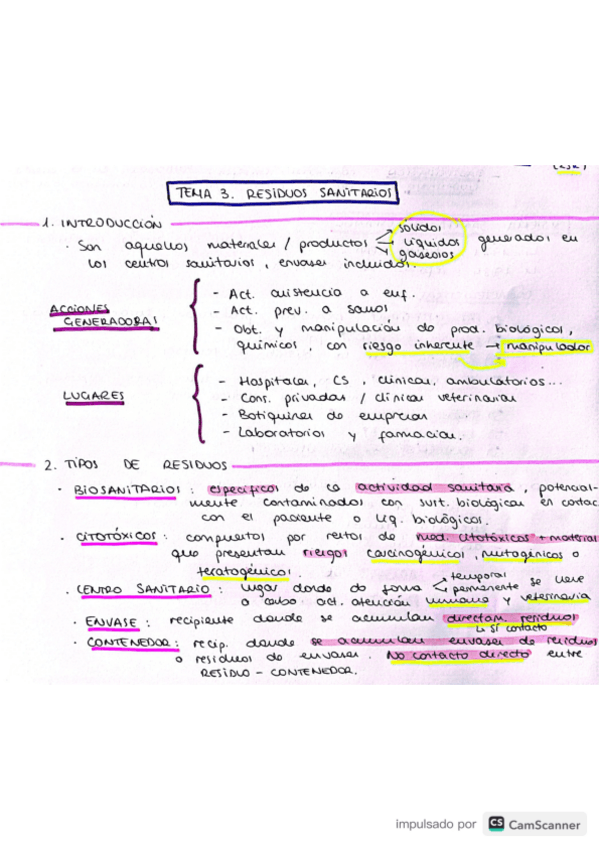 TEMA 3. RESIDUOS SANITARIOS
1. INTRODUCCIÓN
· Son aquellos materiales / productos → sólidos → líquidos → gaseosos generados en
los centros sanitarios, envases incluidos.
ACCIONES GENERADORAS
- Act. asistencia a enf.
- Act. prev. a sanos
- Obt. y manipulación de prod. biológicos,
químicos, con riesgo inherente → manipulador
LUGARES
- Hospitales, CS, clínicas, ambulatorios...
- Cons. privadas / clínicas veterinarias
- Botiquines de empresas
- Laboratorios y farmacias.
2. TIPOS DE RESIDUOS
· BIOSANITARIOS: específicos de la actividad sanitaria, potencial-
mente contaminados con sust. biológicas en contac
con el paciente o líq. biológicos.
· CITOTÓXICOS: compuestos por restos de med. citotóxicos + material
que presentan riesgos carcinogénicos, mutogénicos o
teratogénicos.
· CENTRO SANITARIO: lugar donde de forma → temporal → permanente se lleve
a cabo act. atención humana y veterinaria
· ENVASE: recipiente donde se acumulan directam. residuos
↳ SÍ contacto
· CONTENEDOR: recip. donde se acumulan envases de residuos
o residuos de envases. No contacto directo entre
RESIDUO - CONTENEDOR.
impulsado por CS CamScanner